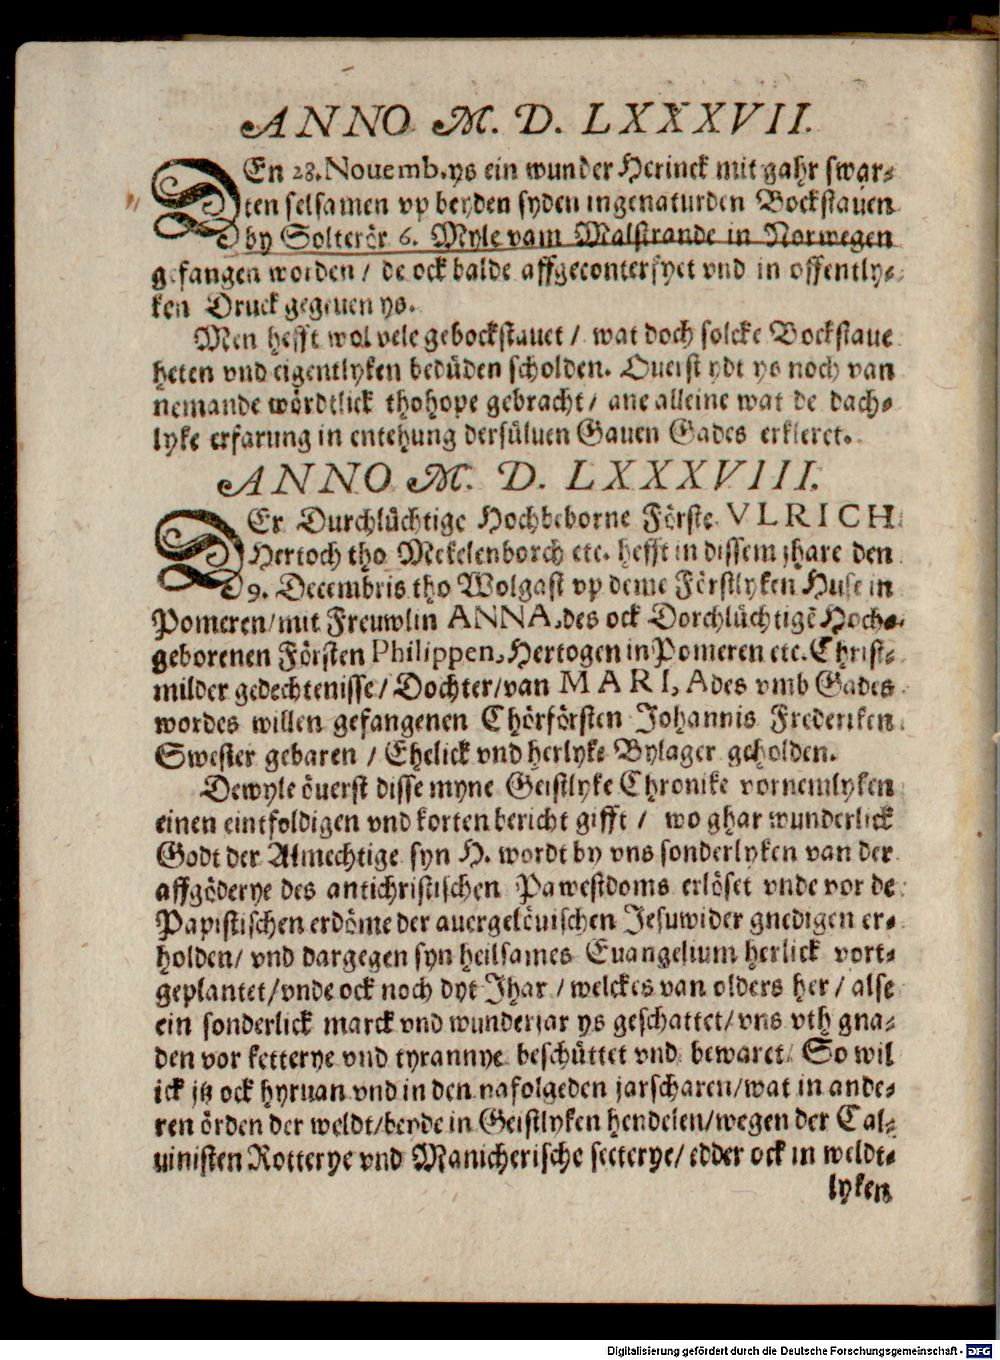 ANNO M. D. LXXXVII.
DEn 28. Nouemb. ys ein wunder Herinck mit gahr swar⸗
ten selsamen vp beyden syden ingenaturden Bockstauen
by Solterör 6. Myle vam Malstrande in Norwegen
gefangen worden / de ock balde affgeconterfyet vnd in offently⸗
ken Druck gegeuen ys.
Men hefft wol vele gebockstauet / wat doch solcke Bockstaue
heten vnd eigentlyken bedüden scholden. Ouerst ydt ys noch van
nemande wördtlick thohope gebracht / ane alleine wat de dach⸗
lyke erfarung in entehung dersüluen Gauen Gades erkleret.
ANNO M. D. LXXXVIII.
DEr Durchlüchtige Hochbeborne Förste VLRICH
Hertoch tho Mekelenborch etc. hefft in dissem jhare den
9. Decembris tho Wolgast vp deme Förstlyken Huse in
Pomeren/mit Freuwlin ANNA, des ock Dorchlüchtigē Hoch⸗
geborenen Försten Philippen, Hertogen in Pomeren etc. Christ⸗
milder gedechtenisse / Dochter/van MARI, A des vmb Gades
wordes willen gefangenen Chörförsten Johannis Frederiken
Swester gebaren / Ehelick vnd herlyke Bylager geholden.
Dewyle öuerst disse myne Geistlyke Chronike vornemlyken
einen eintfoldigen vnd korten bericht gifft / wo ghar wunderlick
Godt der Almechtige syn H. wordt by vns sonderlyken van der
affgöderye des antichristischen Pawestdoms erlöset vnde vor de
Papistischen erdöme der auergelöuischen Jesuwider gnedigen er⸗
holden/ vnd dargegen syn heilsames Euangelium herlick vort⸗
geplantet/vnde ock noch dyt Jhar / welckes van olders her / alse
ein sonderlick marck vnd wunderjar ys geschattet/vns vth gna⸗
den vor ketterye vnd tyrannye beschüttet vnd bewaret. So wil
ick jtz ock hyruan vnd in den nafolgeden jarscharen/wat in ande⸗
ren örden der weldt/beyde in Geistlyken hendelen/wegen der Cal⸗
uinisten Rotterye vnd Manicherische secterye/edder ock in weldt⸗
lyken
Digitalisierung gefördert durch die Deutsche Forschungsgemeinschaft - DFG